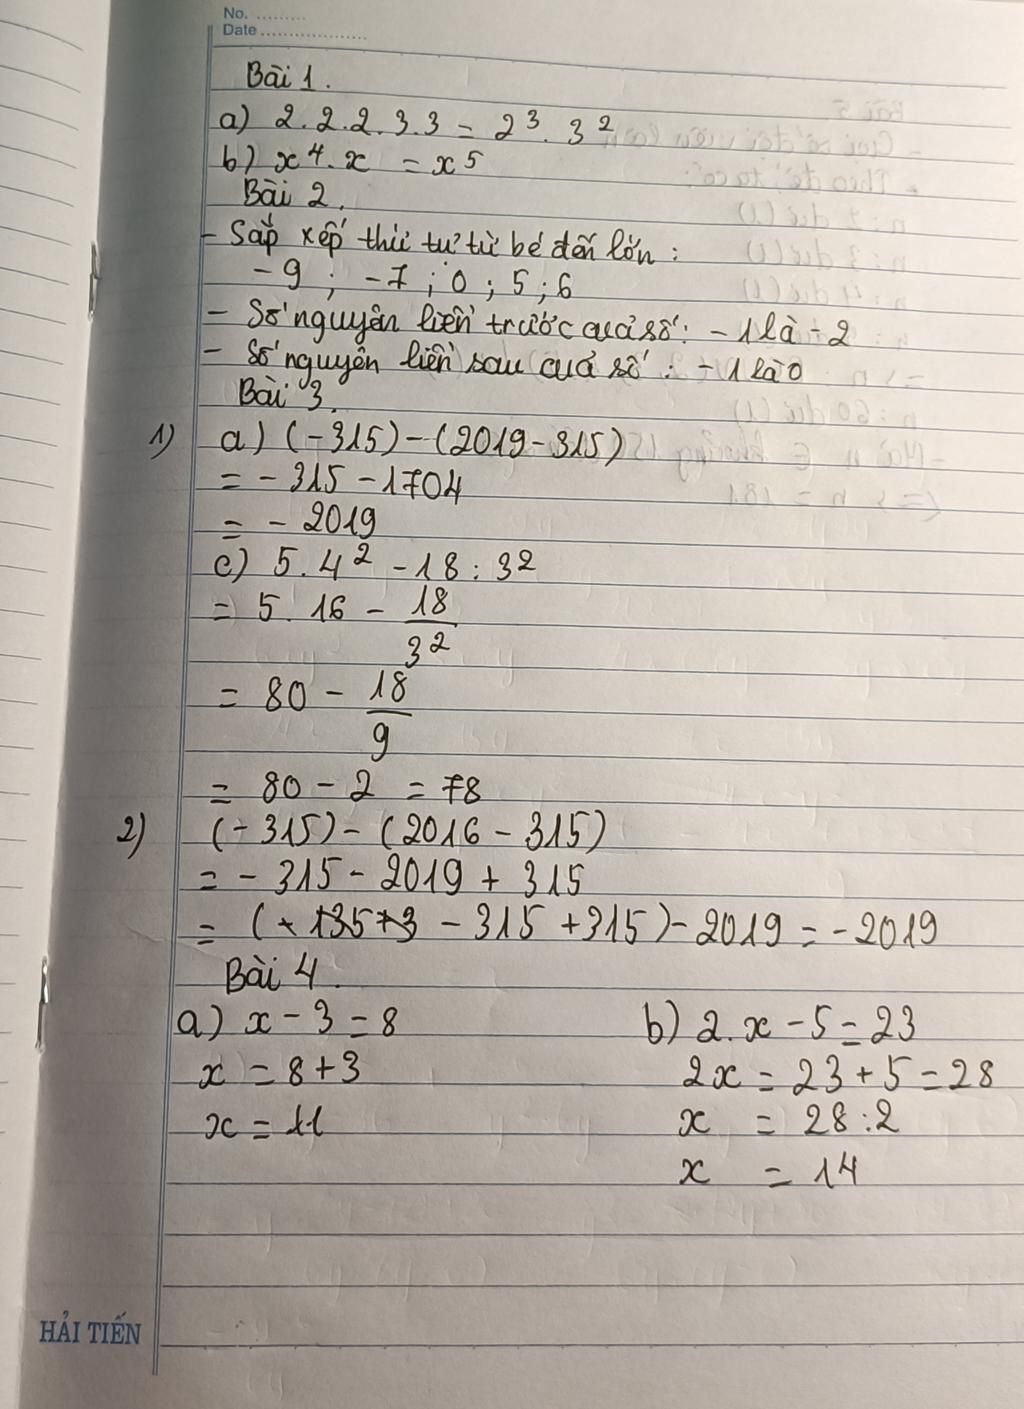 No. .........
Date ..................
Bài 1.
a) 2.2.2.3.3 = 2³. 3²
b) x⁴. x = x⁵
Bài 2.
- Sắp xếp thứ tự từ bé đến lớn :
- 9 ; - 7 ; 0 ; 5 ; 6
- Số nguyên liền trước của số : - 1 là - 2
- Số nguyên liền sau của số : - 1 là 0
Bài 3.
1) a) (-315) - (2019 - 315)
= - 315 - 1704
= - 2019
c) 5. 4² - 18 : 3²
= 5. 16 - 18/3²
= 80 - 18/9
= 80 - 2 = 78
2) (- 315) - (2016 - 315)
= - 315 - 2019 + 315
= ( - 315 + 315) - 2019 = - 2019
Bài 4.
a) x - 3 = 8
x = 8 + 3
x = 11
b) 2. x - 5 = 23
2x = 23 + 5 = 28
x = 28 : 2
x = 14
HẢI TIẾN